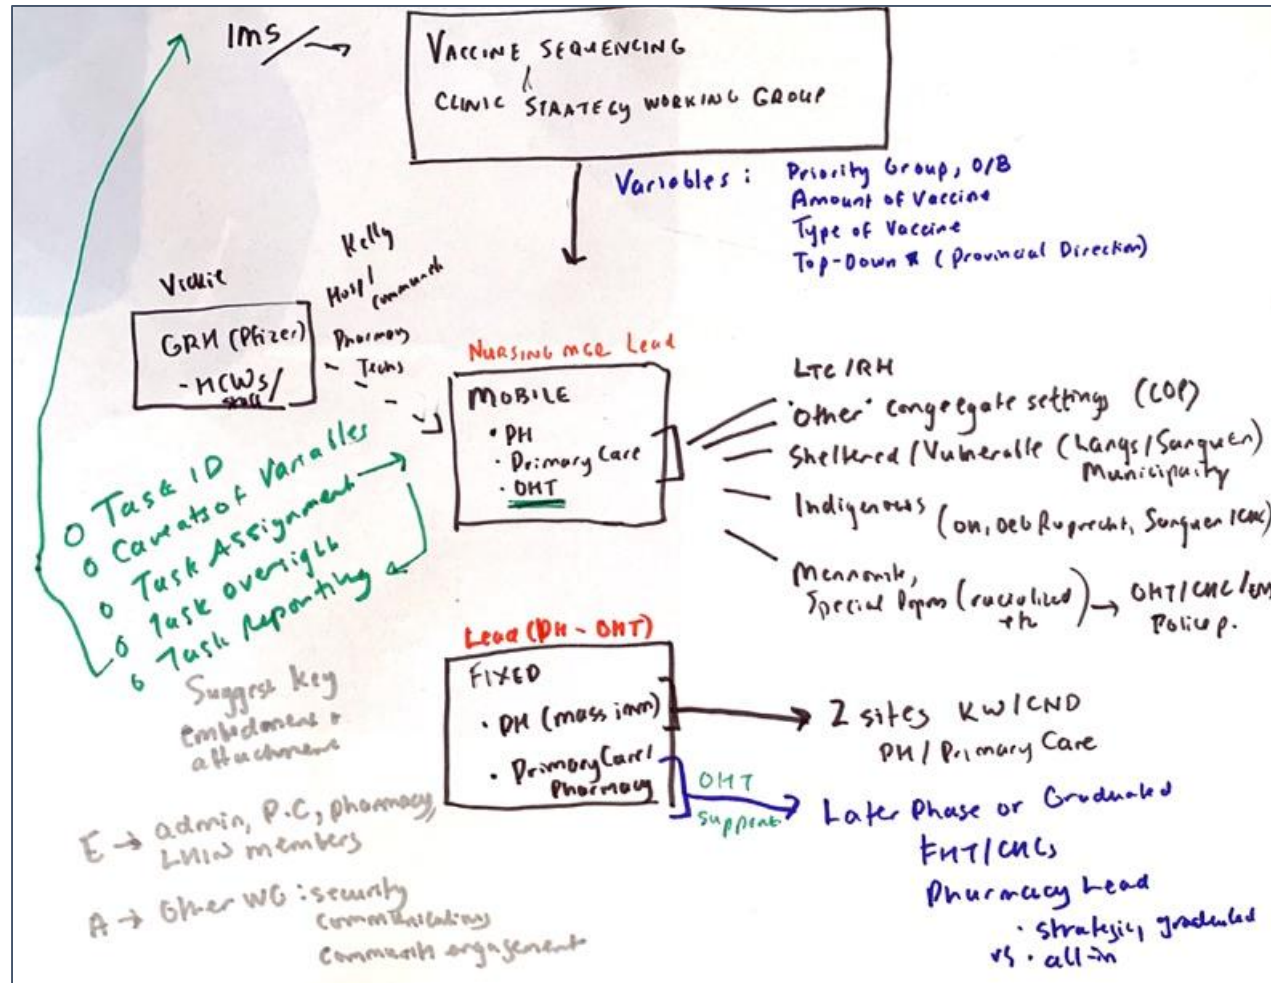 IMS
VACCINE SEQUENCING
CLINIC STRATEGY WORKING GROUP
Variables: Priority Group, O/B
Amount of Vaccine
Type of Vaccine
Top-Down * (Provincial Direction)
Vickie
GRH (Pfizer)
- HCWs/
Kelly
Hosp/
Pharmacy
Techs
NURSING MGR Lead
MOBILE
• PH
• Primary Care
• OHT
LTC/RH
"Other" congregate settings (COP)
Sheltered/Vulnerable (Langs/Sanguen)
Municipality
Indigenous (OH, Deb Ruprecht, Sanguen/CHC)
Mennonite,
Special Popns (racialized → OHT/CHC/
etc)
o Task ID
o Caveats of Variables
o Task Assignment
o Task oversight
o Task Reporting
Lead (PH - OHT)
FIXED
• PH (mass imm)
• Primary Care/
Pharmacy
2 sites KW/CND
PH/Primary Care
OHT
support
Later Phase or Graduated
FHT/CHCs
Pharmacy Lead
• strategic, graduated
vs • all-in
Suggest key
attachment
E → admin, P.C, pharmacy,
LHIN members
A → Other WG: security
communications
community engagement